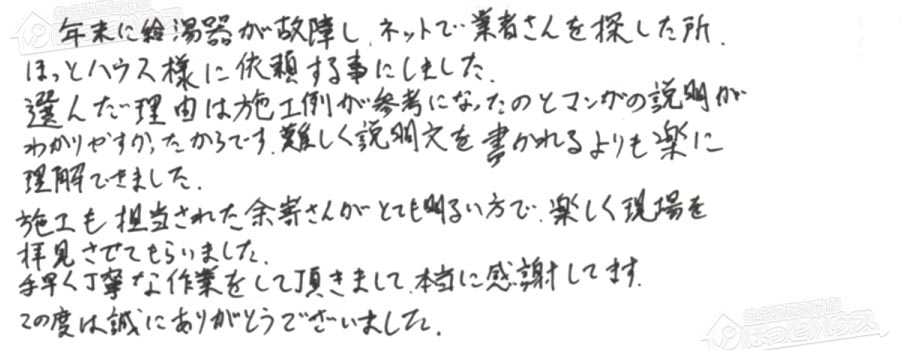 年末に給湯器が故障し、ネットで業者さんを探した所、
ほっとハウス様に依頼する事にしました。
選んだ理由は施工例が参考になったのとマンガの説明が
わかりやすかったからです。難しく説明文を書かれるよりも楽に
理解できました。
施工も担当された余寄さんがとても明るい方で、楽しく現場を
拝見させてもらいました。
手早く丁寧な作業をして頂きまして、本当に感謝してます。
この度は誠にありがとうございました。
ほっとハウス